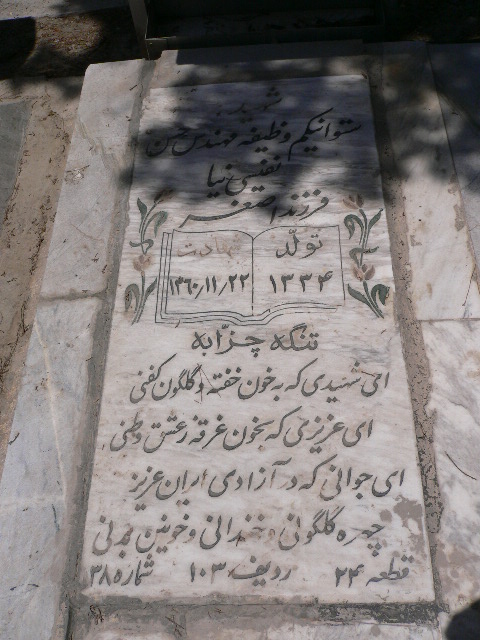 شهید
ستوانیکم وظیفه مهندس حسن
نفیسی نیا
فرزند اصغر
تولد شهادت
۱۳۳۴ ۱۳۶۰/۱۱/۲۲
تنگه چزابه
ای شهیدی که به خون خفته و گلگون کفنی
ای عزیزی که بخون غرقه ز عشق وطنی
ای جوانی که در آزادی ایران عزیز
چهره گلگونی و خندانی و خونین بدنی
قطعه ۲۴ ردیف ۱۰۳ شماره ۳۸